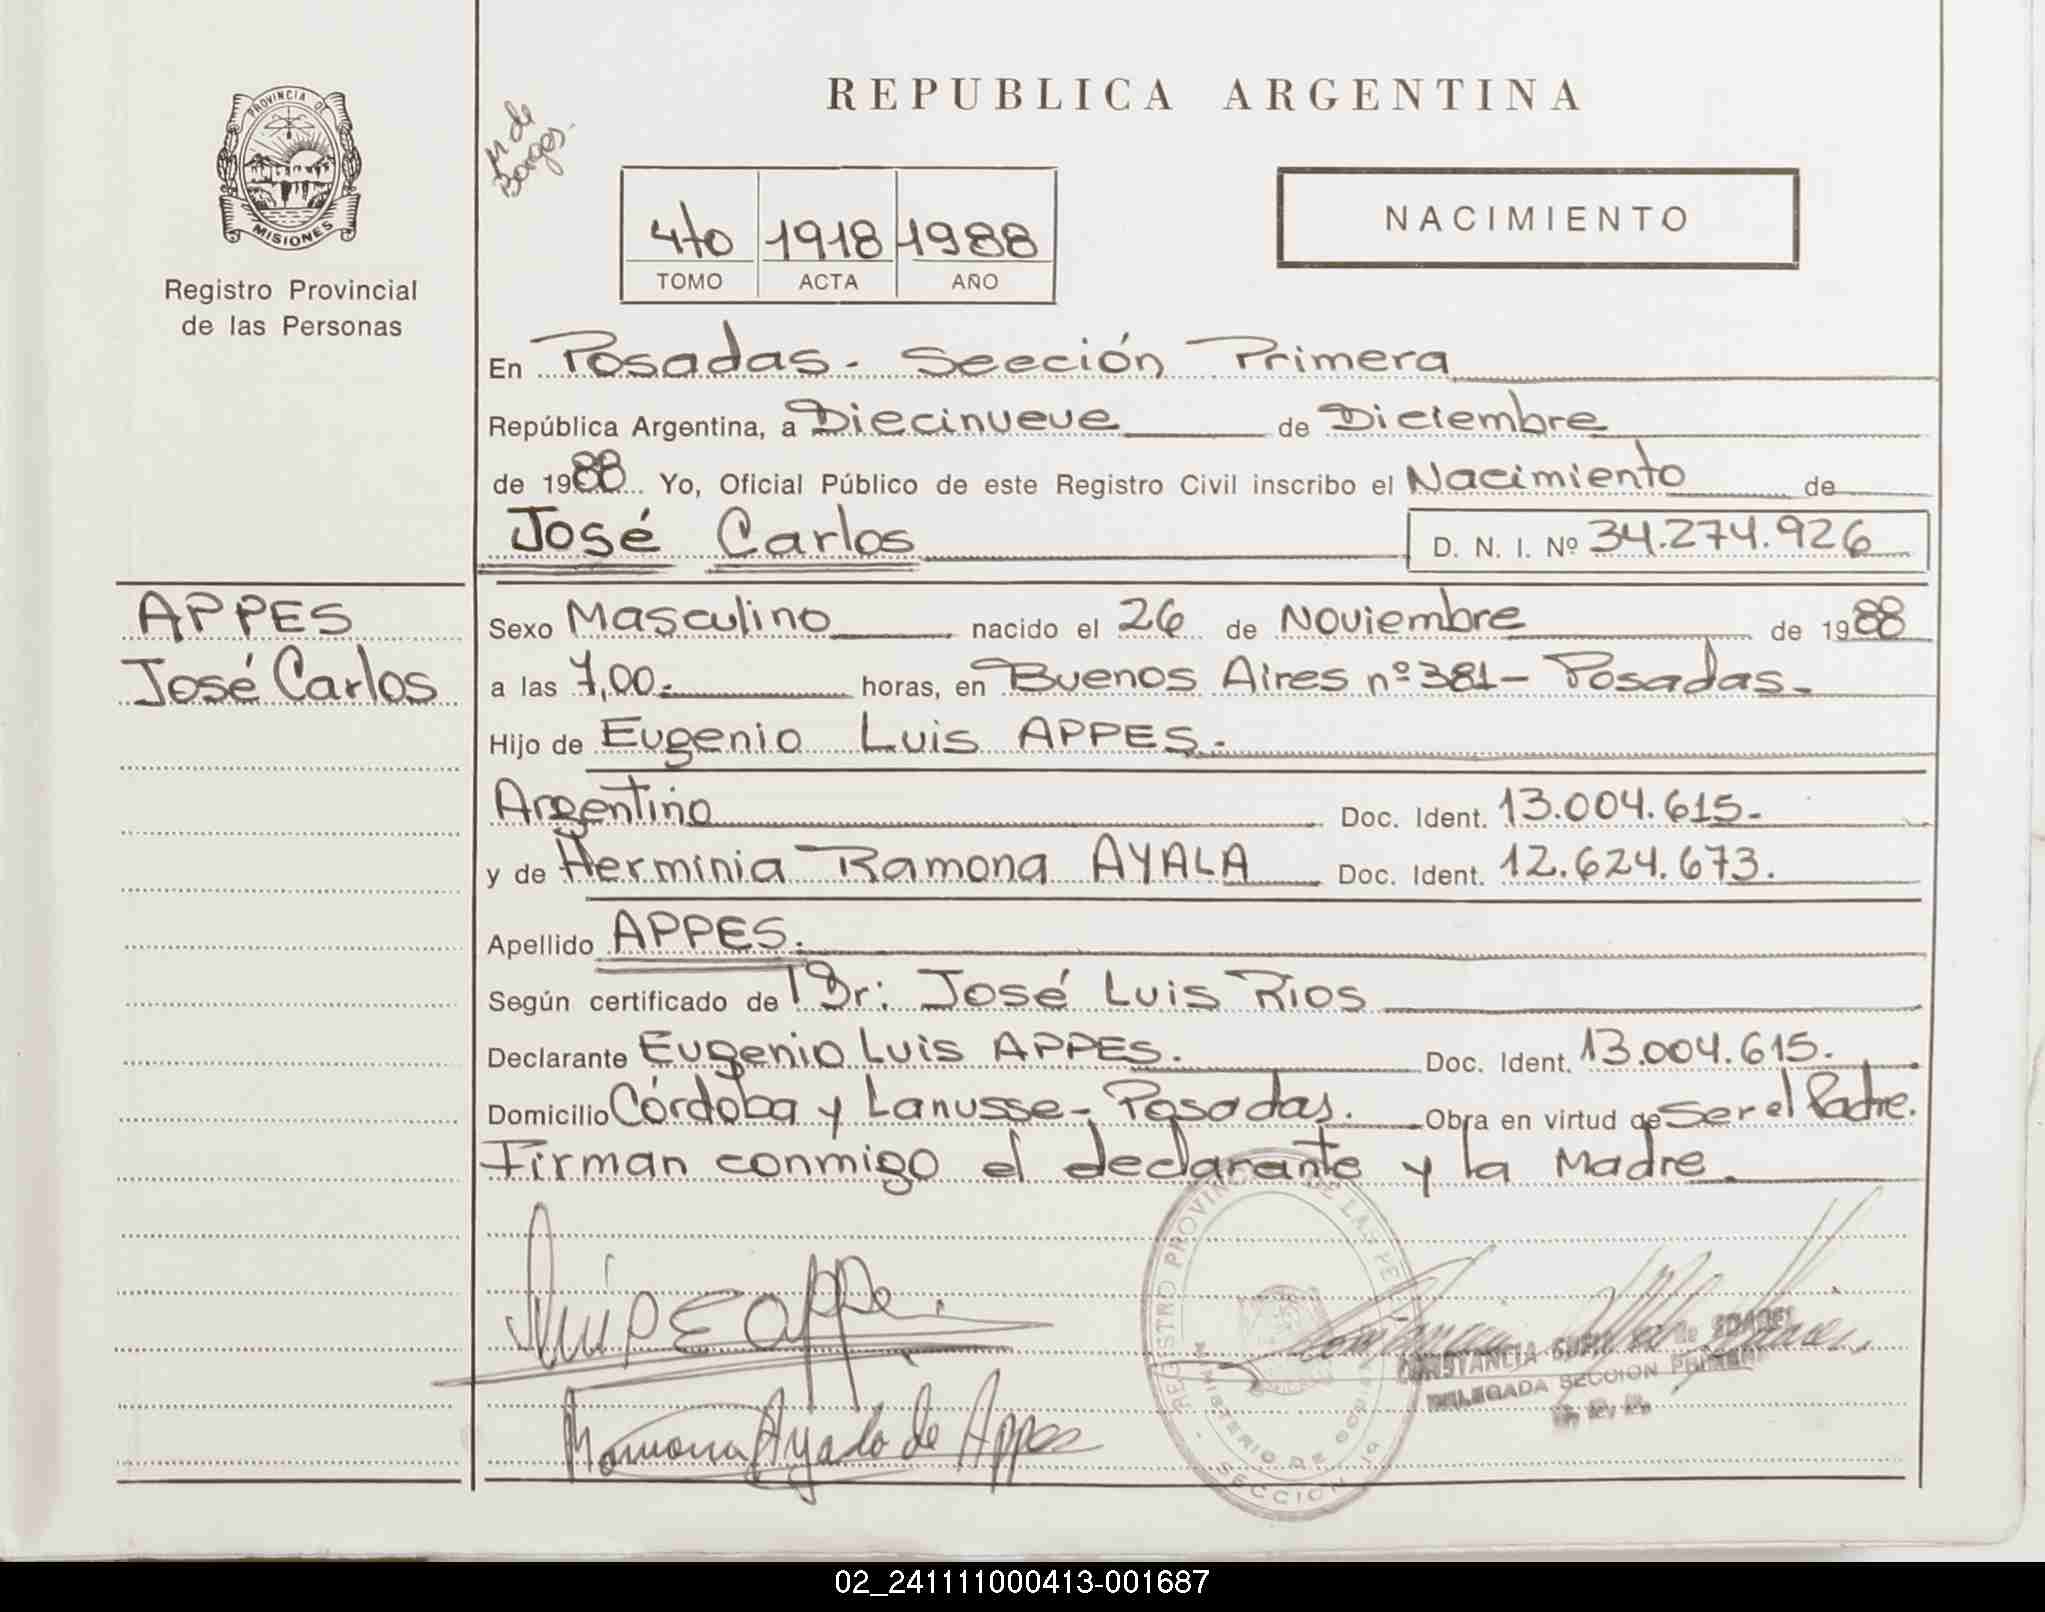 REPUBLICA ARGENTINA
PROVINCIA DE
MISIONES
Registro Provincial
de las Personas
M de
Borges.
4to 1918 1988
TOMO ACTA AÑO
NACIMIENTO
En Posadas. Sección Primera
República Argentina, a Diecinueve de Diciembre
de 1988 Yo, Oficial Público de este Registro Civil inscribo el Nacimiento de
José Carlos D. N. I. Nº 34.274.926
APPES
José Carlos
Sexo Masculino nacido el 26 de Noviembre de 1988
a las 7,00.- horas, en Buenos Aires nº 381 - Posadas.
Hijo de Eugenio Luis APPES.
Argentino Doc. Ident. 13.004.615.
y de Herminia Ramona AYALA Doc. Ident. 12.624.673.
Apellido APPES.
Según certificado de Dr: José Luis Rios
Declarante Eugenio Luis APPES. Doc. Ident. 13.004.615.
Domicilio Córdoba y Lanusse - Posadas. Obra en virtud de Ser el Padre.
Firman conmigo el declarante y la Madre.
Ramona Ayala de Appes
REGISTRO PROVINCIAL DE LAS PE
MINISTERIO DE GOBI
SECCION 1a
CONSTANCIA
DELEGADA SECCION PRIMERA
02_241111000413-001687